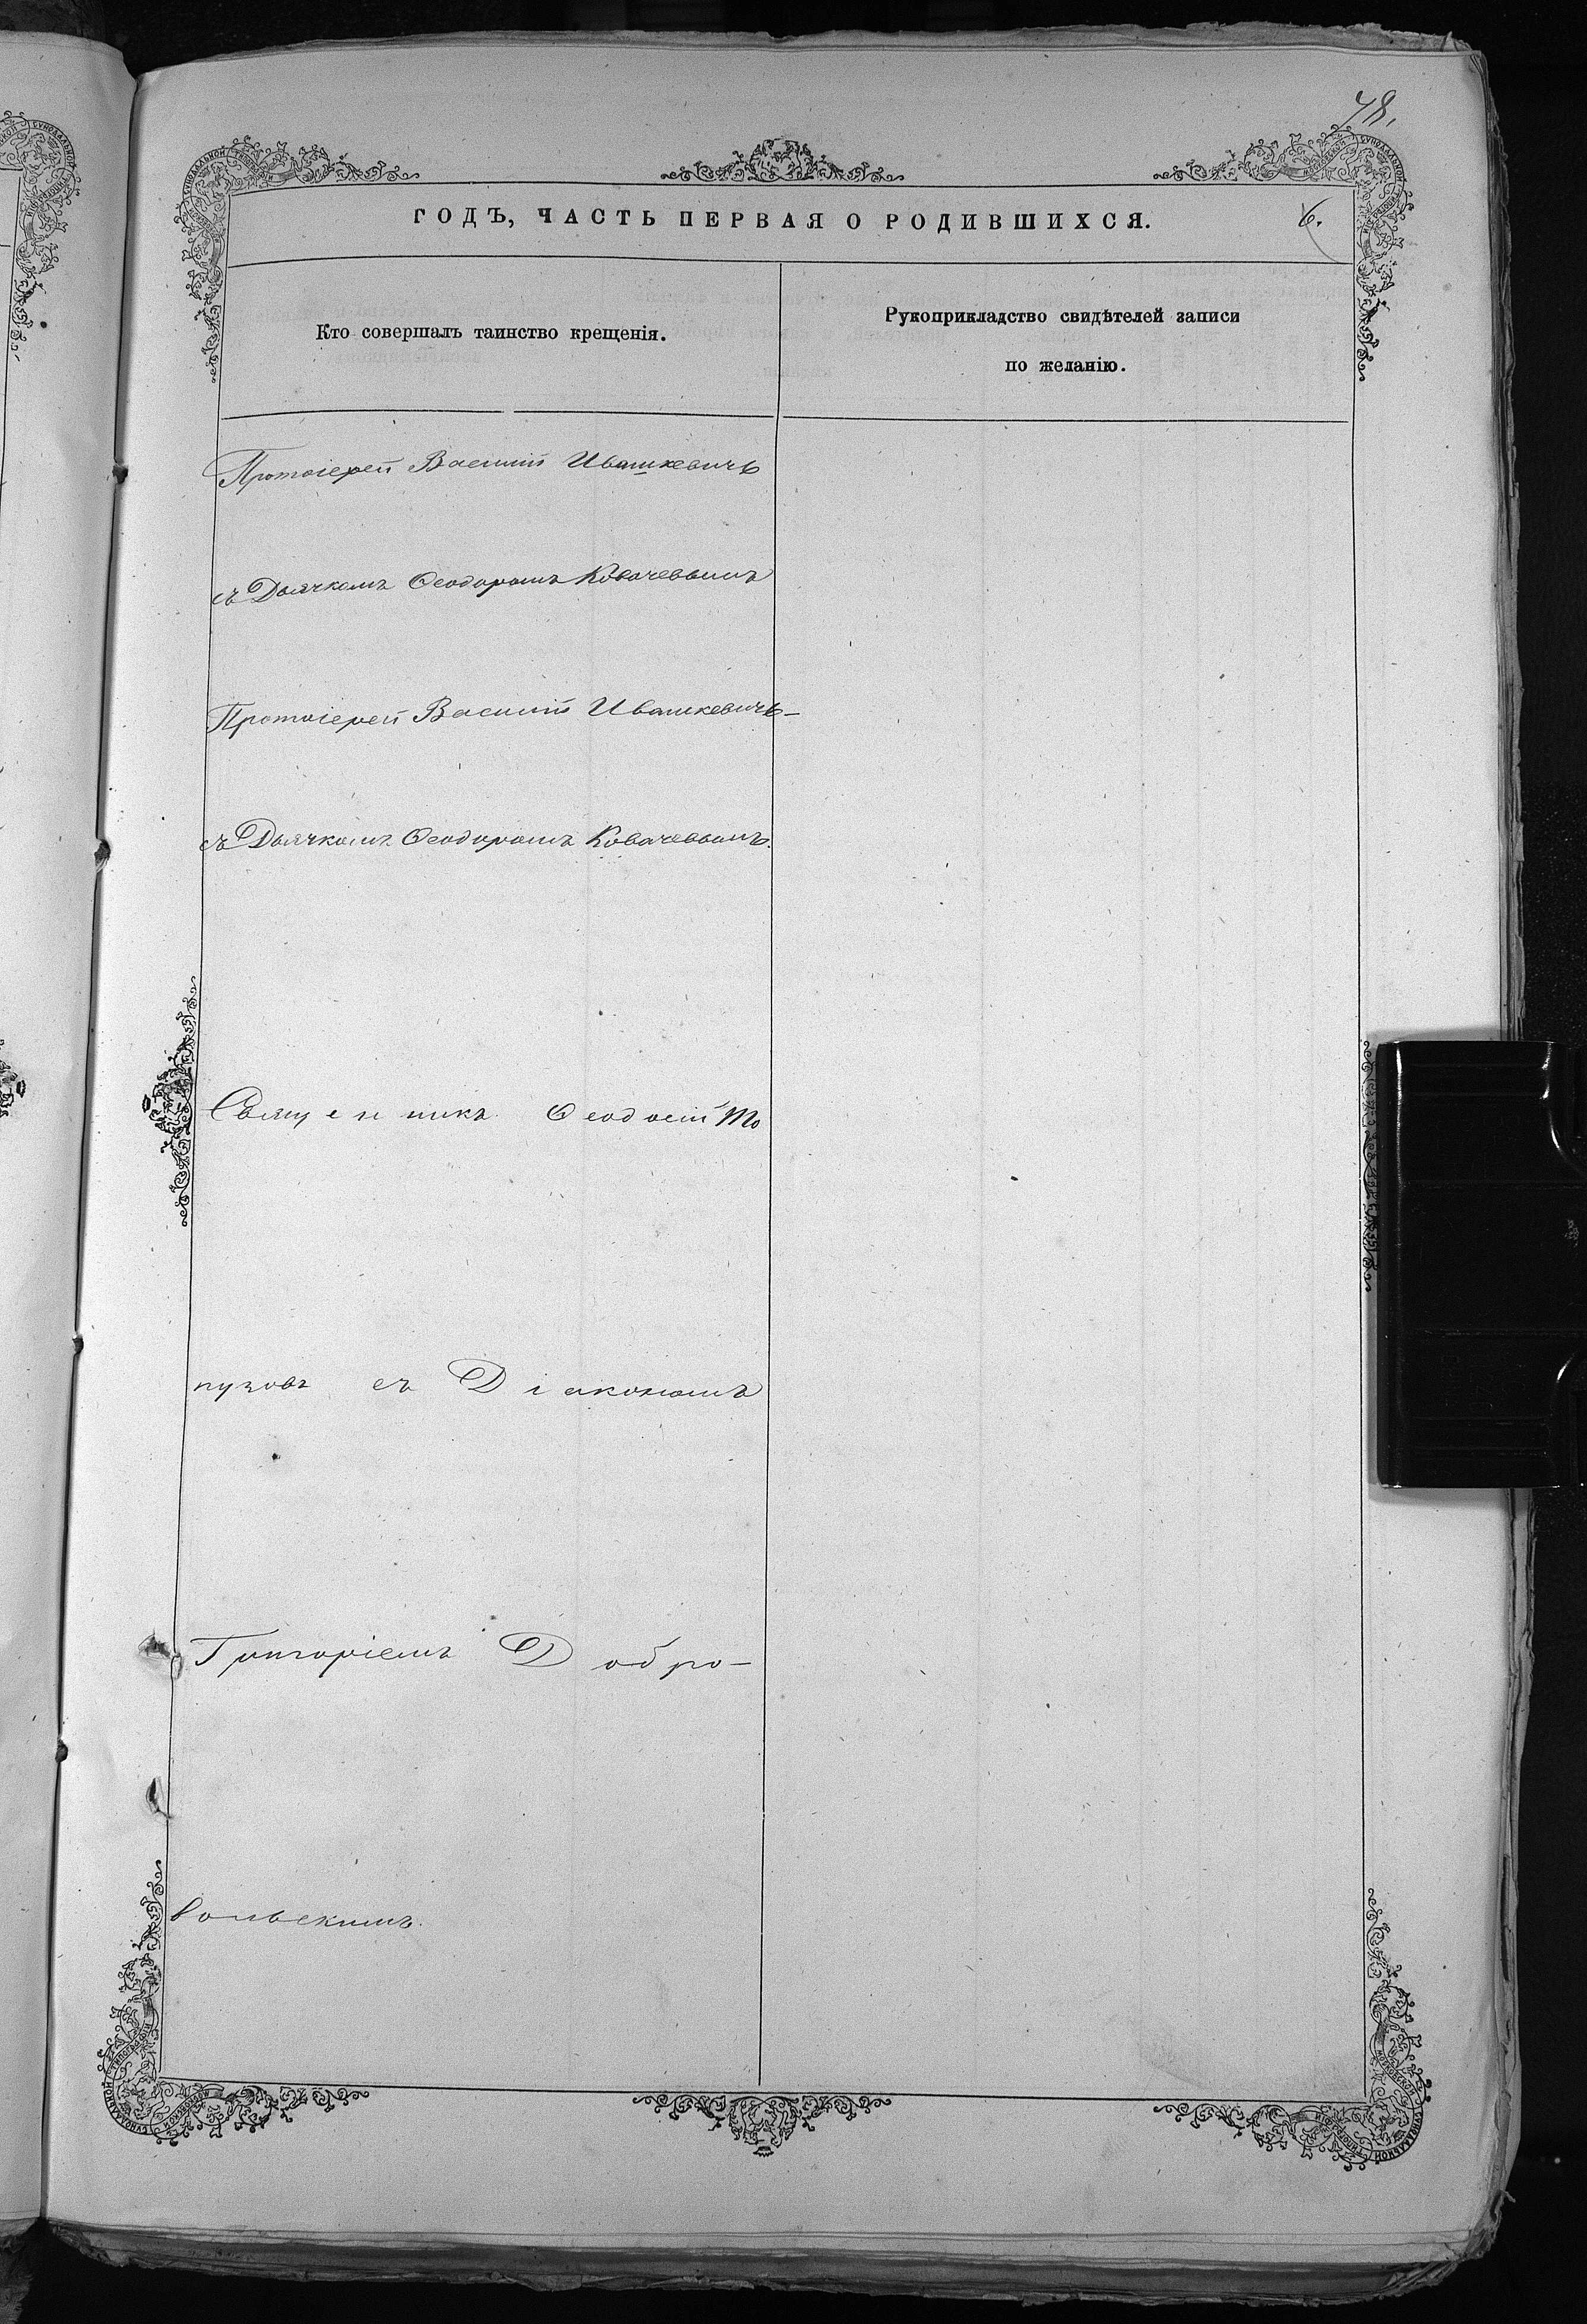 78.
ГОДЪ, ЧАСТЬ ПЕРВАЯ О РОДИВШИХСЯ.
6.
Кто совершалъ таинство крещенія.
Рукоприкладство свидѣтелей записи
по желанію.
Протоіерей Василій Ивашкевичъ
съ Дьячкомъ Ѳеодоромъ Ковачевымъ
Протоіерей Василій Ивашкевичъ
съ Дьячкомъ Ѳеодоромъ Ковачевымъ.
Священникъ Ѳеодосій То
пузовъ съ Діакономъ
Григоріемъ Добро-
вольскимъ.